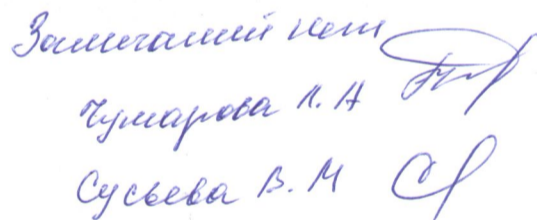 Замечаний нет
Чумарова Л. А
Сусьева В. М